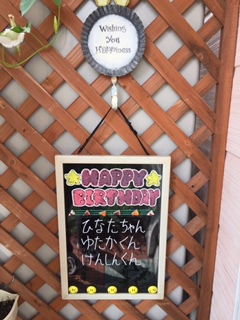 Wishing
You
Happiness
HAPPY
BIRTHDAY
ひなたちゃん
ゆたかくん
けんしんくん